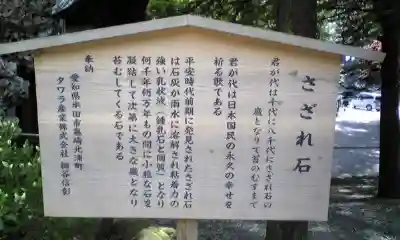 さざれ石
君が代は千代に八千代にさざれ石の
巌となりて苔のむすまで
君が代は日本国民の永久の幸せを
祈る歌である
平安時代前期に発見されたさざれ石
は石灰が雨水に溶解され粘着力の
強い乳状液(鍾乳石と同質)となり
何千年何万年もの間に小粒な石を
凝結して次第に大きな巌となり
苔むしてくる石である
奉納
愛知県半田市亀崎北浦町
タワラ産業株式会社 細谷信彰